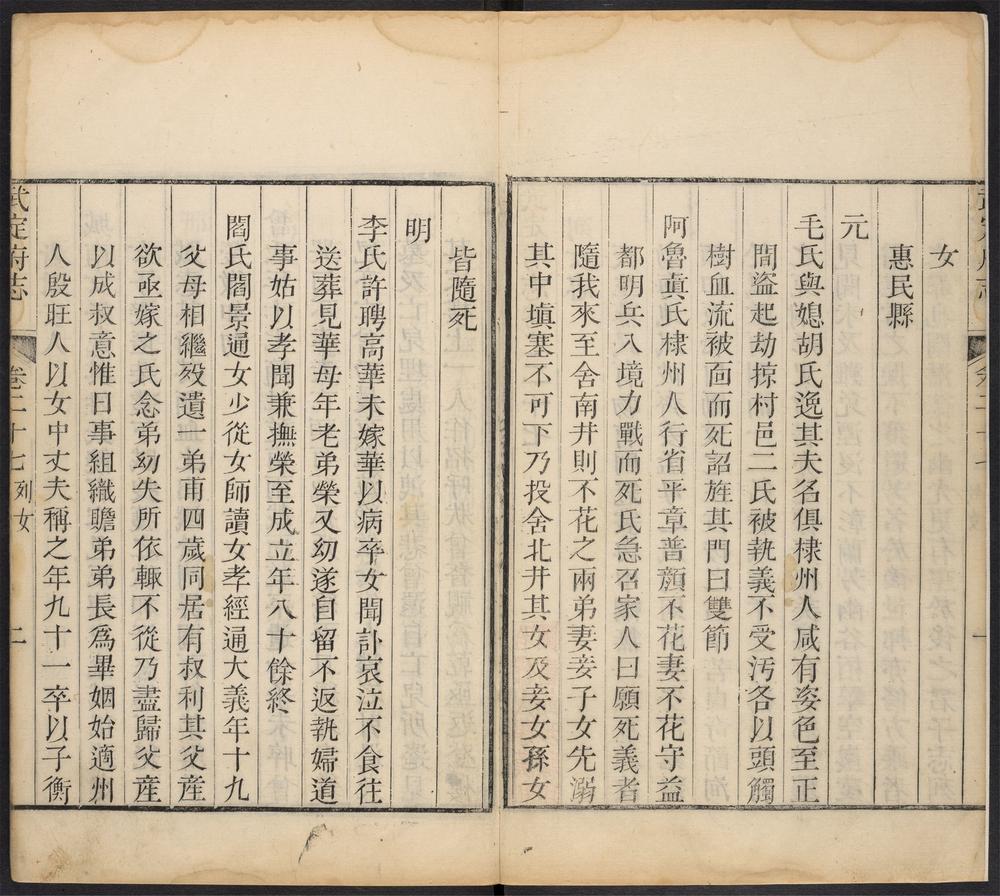 女
惠民縣
元
毛氏與媳胡氏逸其夫名俱棣州人咸有姿色至正
間盜起劫掠村邑二氏被執義不受污各以頭觸
樹血流被面而死詔旌其門曰雙節
阿魯眞氏棣州人行省平章普顏不花妻不花守益
都明兵入境力戰而死氏急召家人曰願死義者
隨我來至舍南井則不花之兩弟妻妾子女先溺
其中塡塞不可下乃投舍北井其女及妾女孫女
皆隨死
明
李氏許聘高華未嫁華以病卒女聞訃哀泣不食往
送葬見華母年老弟榮又幼遂自留不返執婦道
事姑以孝聞兼撫榮至成立年八十餘終
閻氏閻景通女少從女師讀女孝經通大義年十九
父母相繼歿遺一弟甫四歲同居有叔利其父產
欲亟嫁之氏念弟幼失所依輒不從乃盡歸父產
以成叔意惟日事組織贍弟弟長爲畢姻始適州
人殷旺人以女中丈夫稱之年九十一卒以子衡
武定府志
卷二十七列女
二